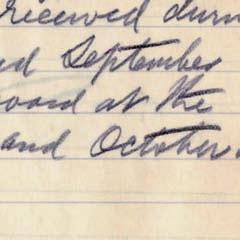 received durin
nd September
oard at the
and October.